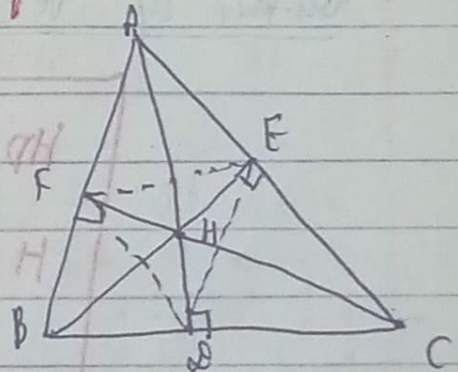 A
E
F
H
B
D
C